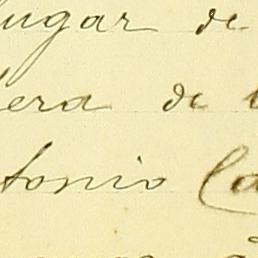 lugar de
era de
tonio Ca